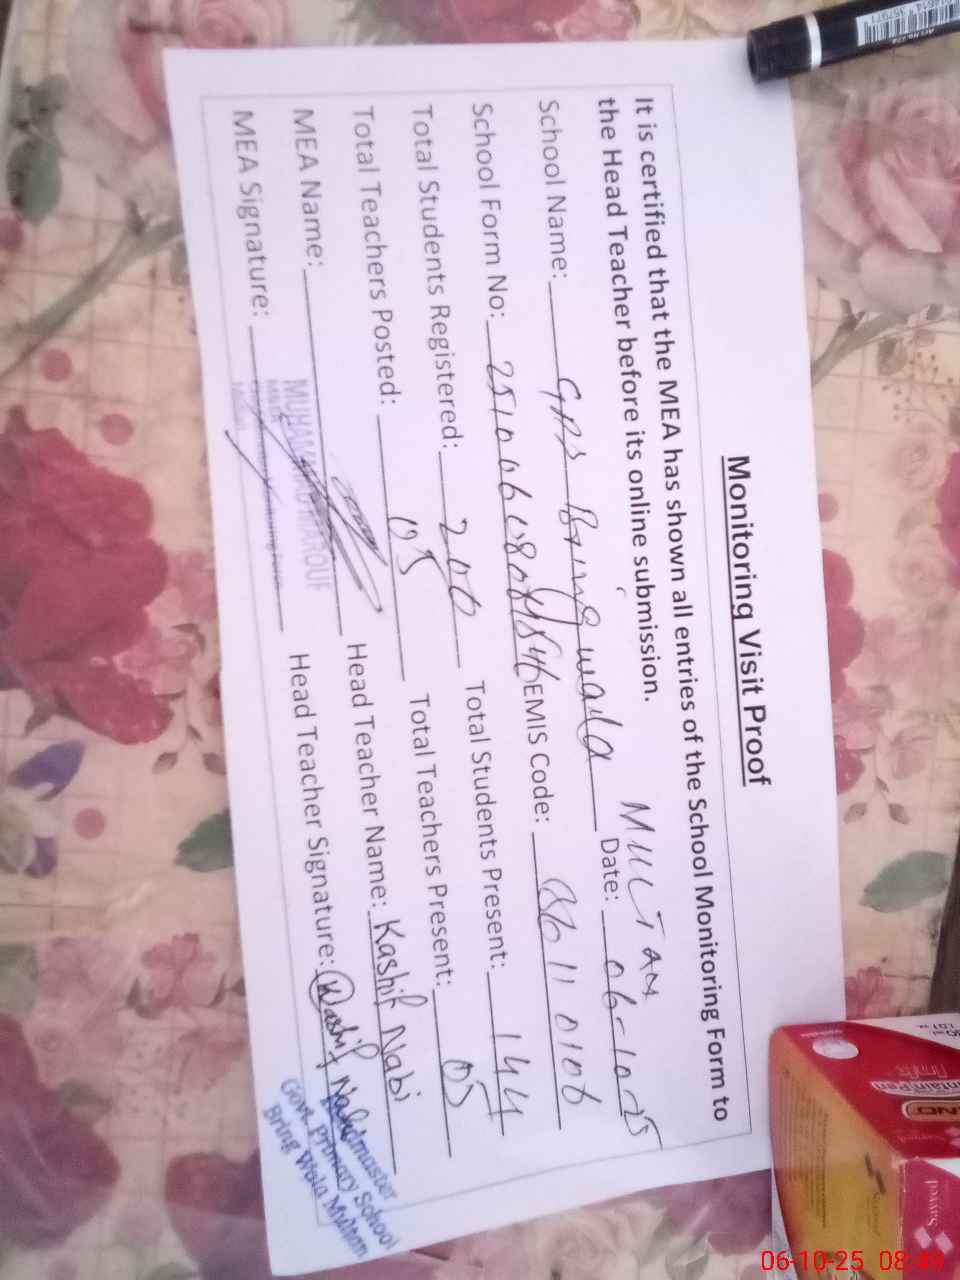 Monitoring Visit Proof
It is certified that the MEA has shown all entries of the School Monitoring Form to
the Head Teacher before its online submission.
MULTAN
School Name: GPS Bring wala Date: 06-10-25
School Form No: EMIS Code: 36110106
Total Students Registered: 200 Total Students Present: 144
Total Teachers Posted: 05 Total Teachers Present: 05
MEA Name: MUHAMMAD MAROUF Head Teacher Name: Kashif Nabi
MEA Signature: Head Teacher Signature: Kashif Nabi
Headmaster
Govt. Primary School
Bring Wala Multan
06-10-25 08:49